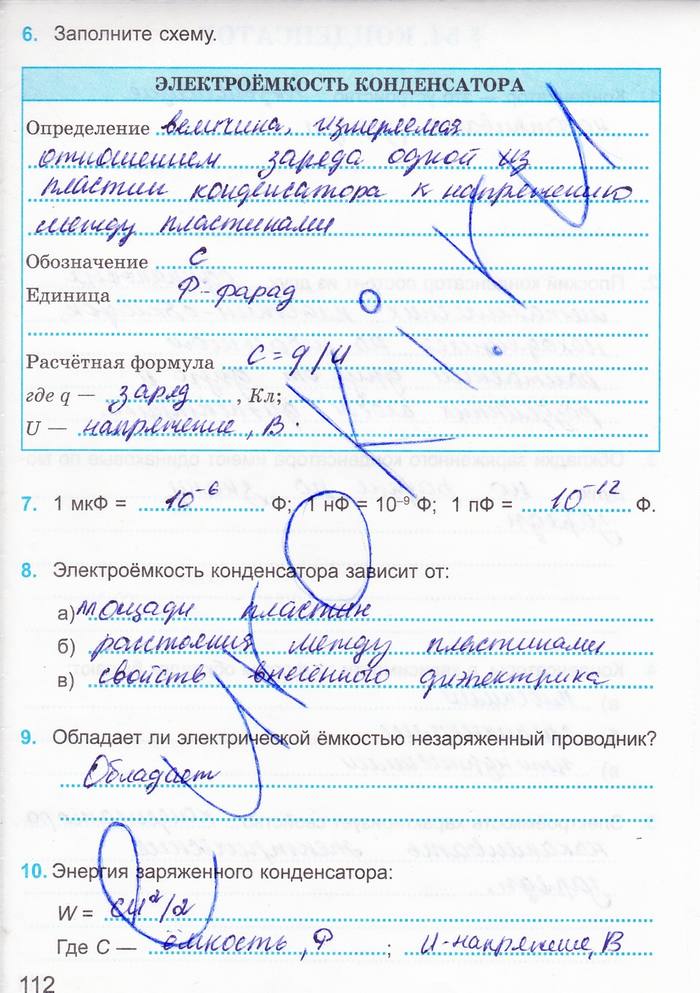 6. Заполните схему.
ЭЛЕКТРОЁМКОСТЬ КОНДЕНСАТОРА
Определение величина, измеряемая
отношением заряда одной из
пластин конденсатора к напряжению
между пластинами
Обозначение С
Единица Ф - фарад
Расчётная формула С = q/U
где q — заряд, Кл;
U — напряжение, В.
7. 1 мкФ = 10⁻⁶ Ф; 1 нФ = 10⁻⁹ Ф; 1 пФ = 10⁻¹² Ф.
8. Электроёмкость конденсатора зависит от:
а) площади пластин
б) расстояния между пластинами
в) свойств внесённого диэлектрика
9. Обладает ли электрической ёмкостью незаряженный проводник?
Обладает
10. Энергия заряженного конденсатора:
W = CU²/2
Где C — ёмкость, Ф; U - напряжение, В
112